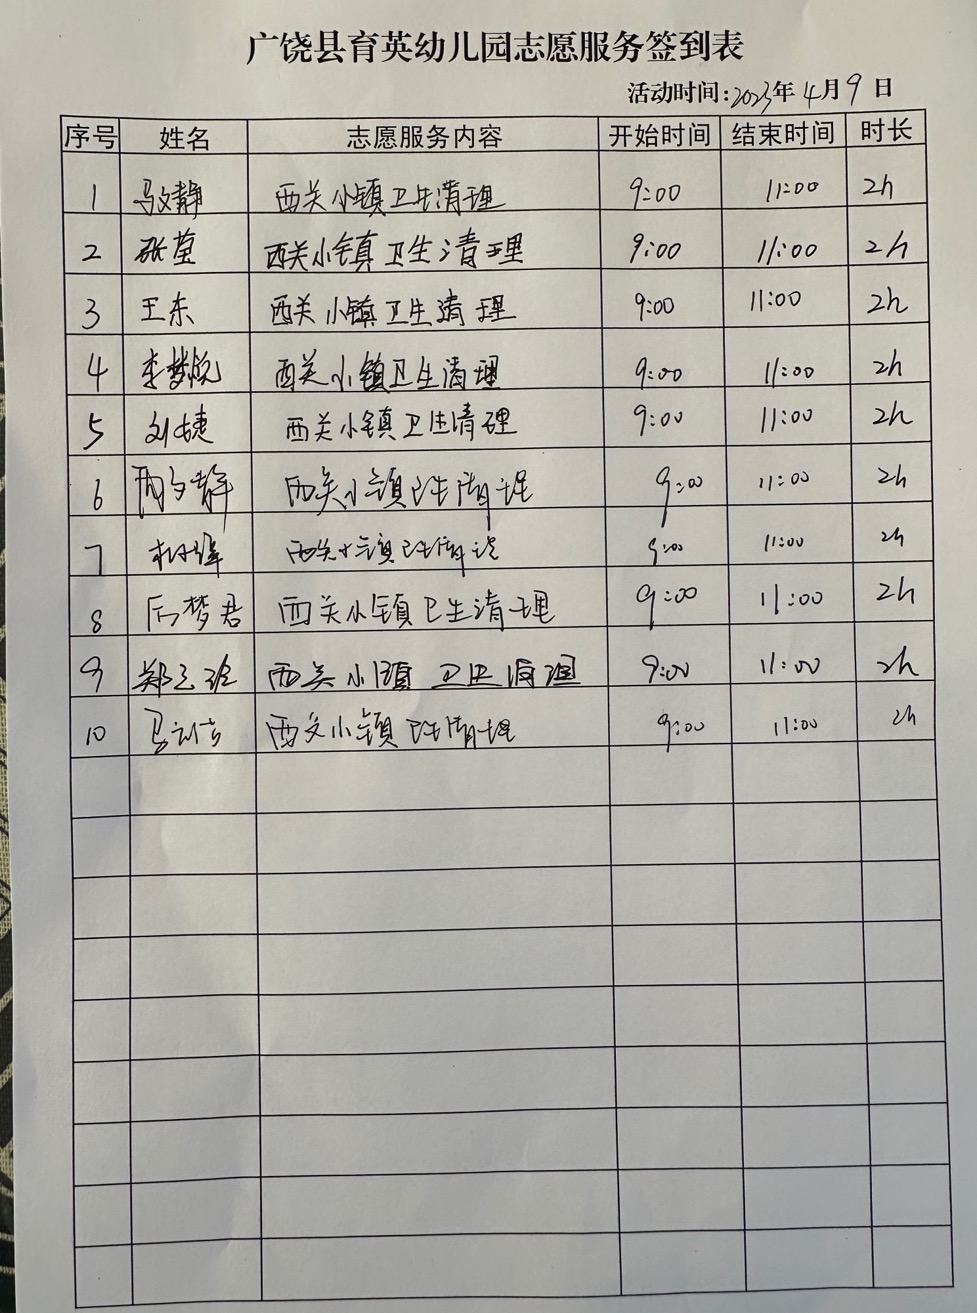 广饶县育英幼儿园志愿服务签到表
活动时间:2023年4月9日
序号 姓名 志愿服务内容 开始时间 结束时间 时长
1 马文静 西关小镇卫生清理 9:00 11:00 2h
2 张莹 西关小镇卫生清理 9:00 11:00 2h
3 王东 西关小镇卫生清理 9:00 11:00 2h
4 李梦悦 西关小镇卫生清理 9:00 11:00 2h
5 刘婕 西关小镇卫生清理 9:00 11:00 2h
6 西关小镇卫生清理 9:00 11:00 2h
7 西关小镇卫生清理 9:00 11:00 2h
8 西关小镇卫生清理 9:00 11:00 2h
9 西关小镇卫生清理 9:00 11:00 2h
10 西关小镇卫生清理 9:00 11:00 2h